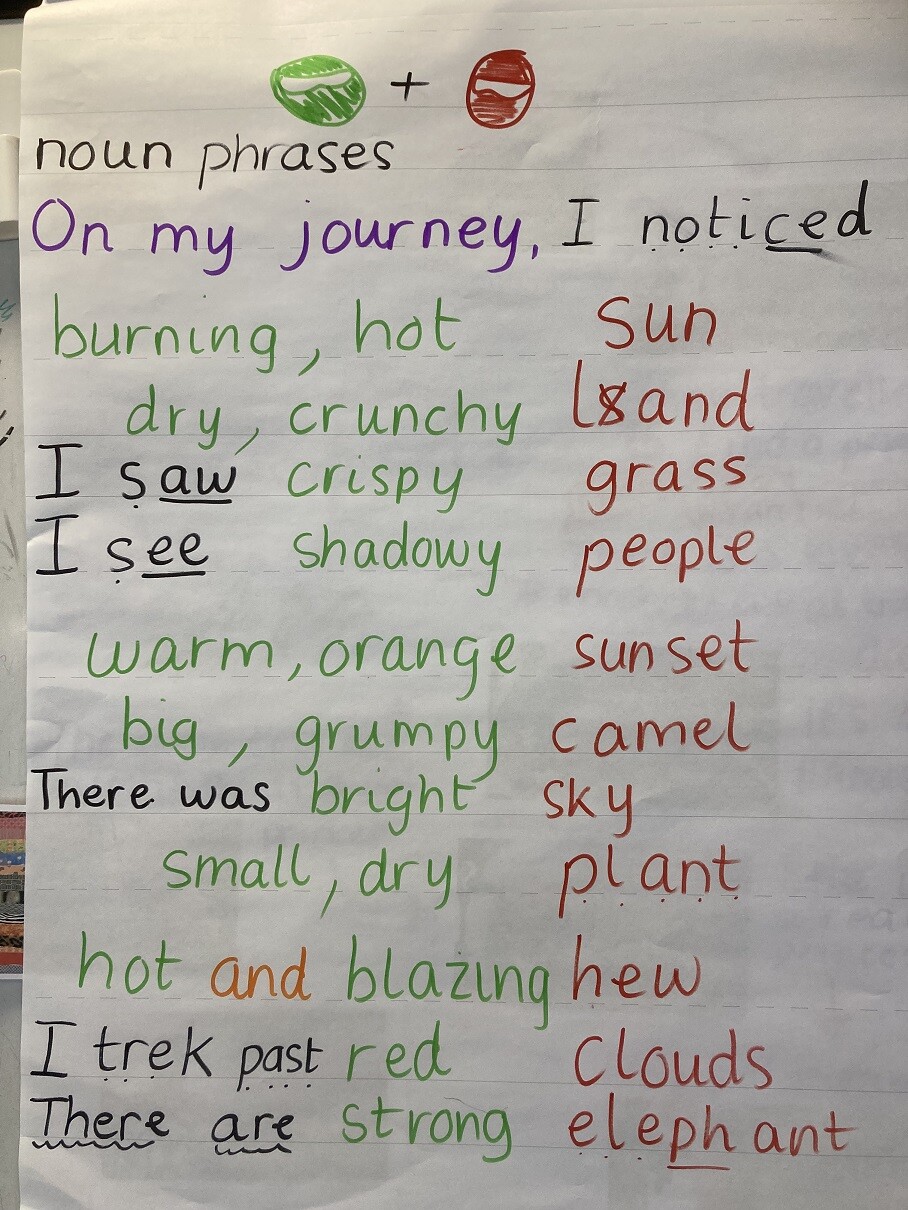 +
noun phrases
On my journey, I noticed
burning, hot sun
dry, crunchy land
I saw crispy grass
I see shadowy people
warm, orange sunset
big, grumpy camel
There was bright sky
small, dry plant
hot and blazing hew
I trek past red clouds
There are strong elephant